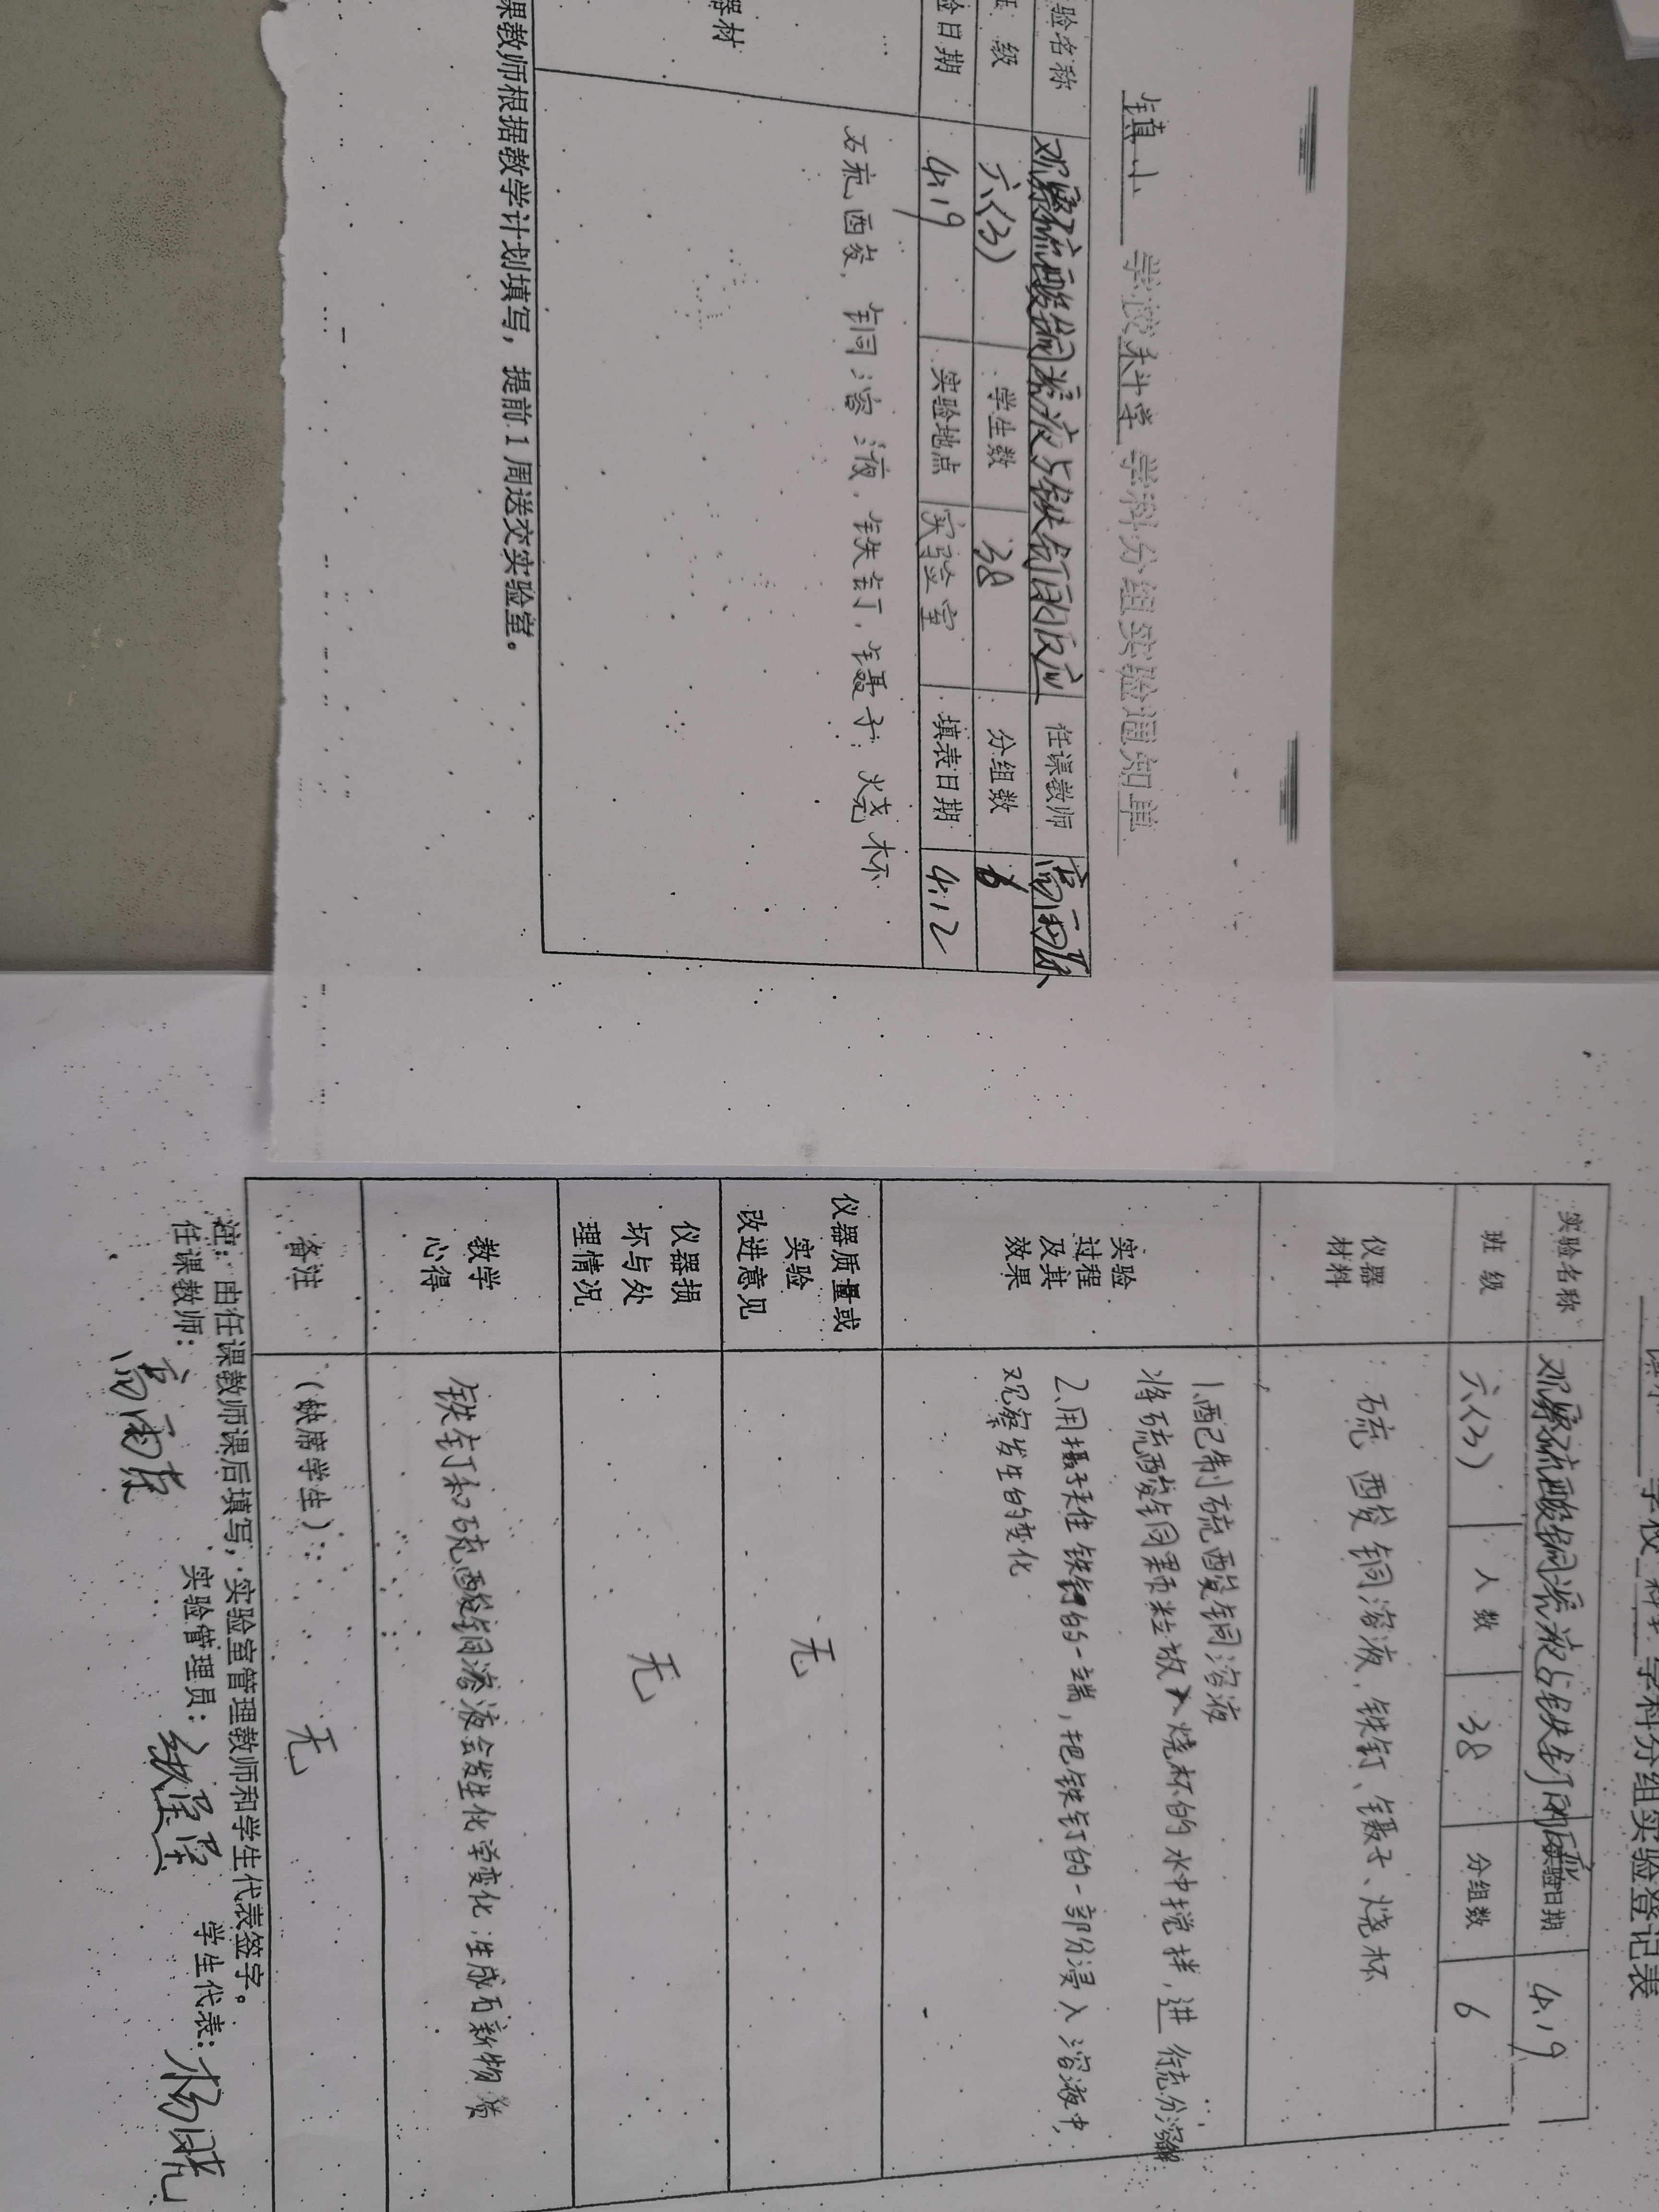 镇小 学校 科学 学科分组实验通知单
验名称 观察硫酸铜溶液与铁钉的反应 任课教师
级 六(3) 学生数 38 分组数 6
验日期 4.19 实验地点 实验室 填表日期 4.12
器材 硫酸, 铜溶液, 铁钉, 镊子, 烧杯
课教师根据教学计划填写，提前1周送交实验室。
学校 科学 学科分组实验登记表
实验名称 观察硫酸铜溶液与铁钉的反应 实验日期 4.19
班级 六(3) 人数 38 分组数 6
仪器
材料
硫酸铜溶液、铁钉、镊子、烧杯
实验
过程
及其
效果
1.配制硫酸铜溶液
将硫酸铜颗粒放入烧杯的水中搅拌,进行充分溶解
2.用摄子夹住铁钉的一端,把铁钉的一部份浸入溶液中,
观察发生的变化
仪器质量或
实验
改进意见
无
仪器损
坏与处
理情况
无
教学
心得
铁钉和硫酸铜溶液会发生化学变化,生成了新物质
备注
(缺席学生): 无
注：由任课教师课后填写，实验室管理教师和学生代表签字。
任课教师： 实验管理员： 学生代表：